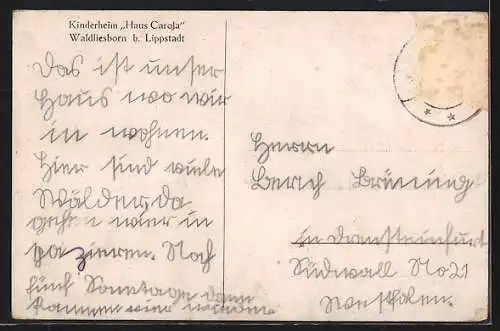 Kinderheim „Haus Carola"
Waldliesborn b. Lippstadt
Das ist unser
Haus wo wir
in wohnen.
Hier sind viele
Wälder, da
gehen wier in
spazieren. Noch
fünf Sonntage dann
kommen wier wieder.
Herrn
Berch Brüning
in Drensteinfurt
Südwall No 21
Westfalen.